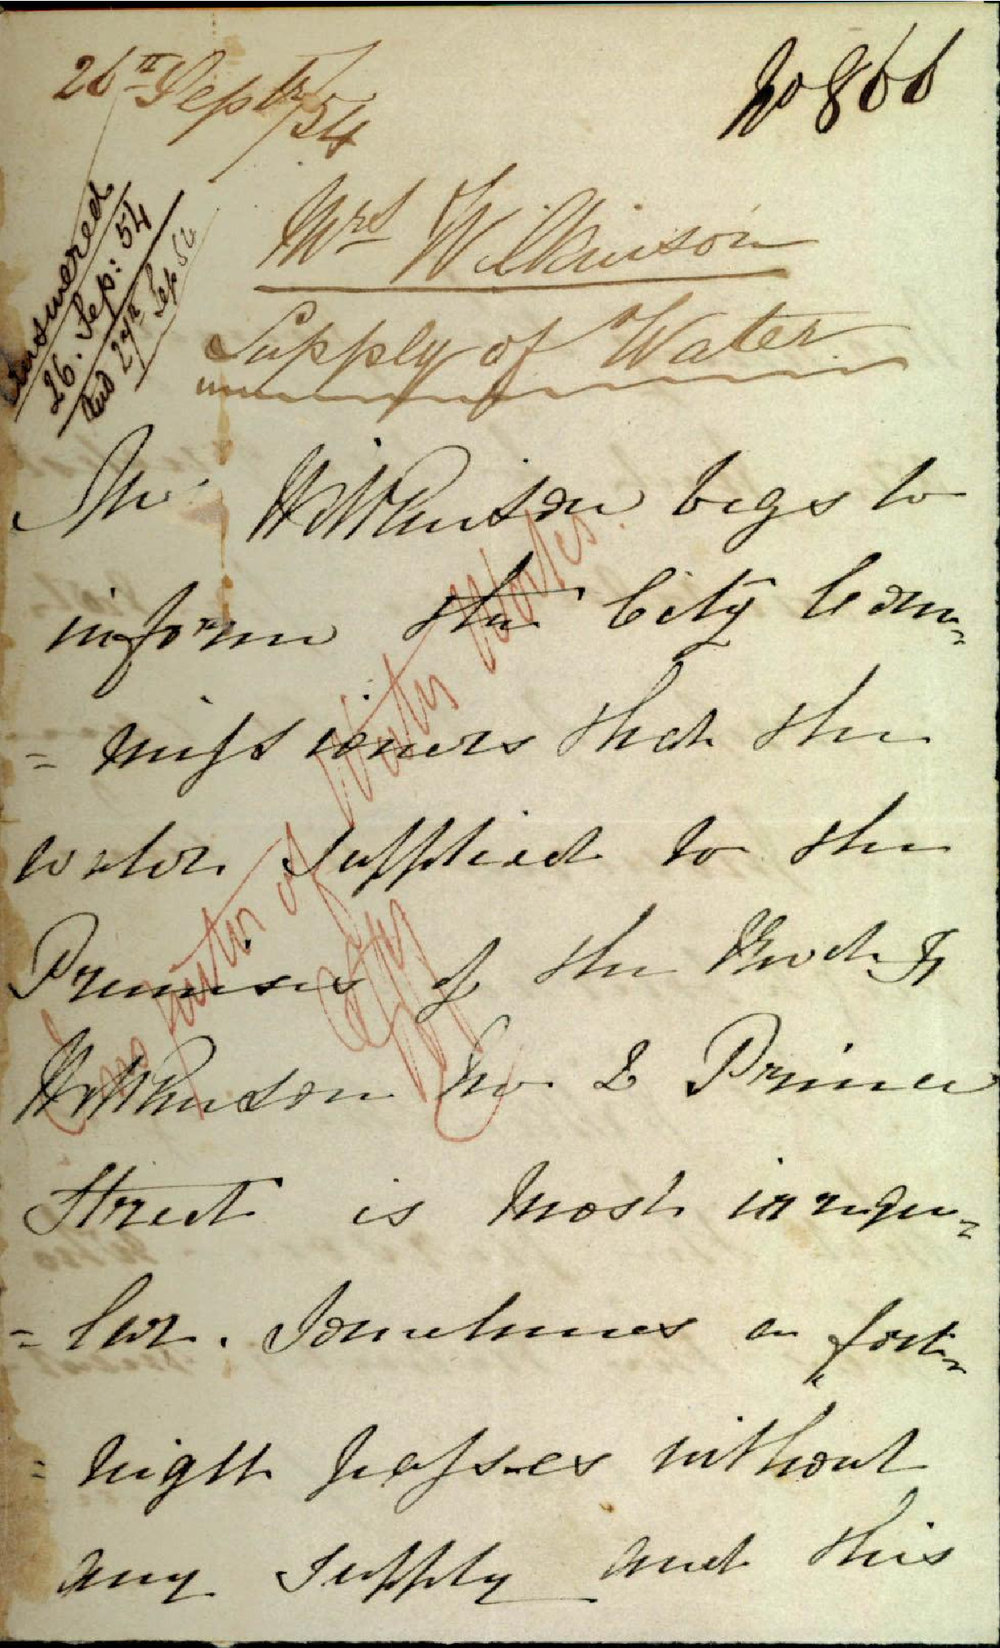 26th Septr/54
No 866
Answered
26. Sep: 54
And 27th Sep 54
Mrs Wilkinson
Supply of Water
Mrs Wilkinson begs to
inform the City Com=
=missioners that the
water supplied to the
Premises of the
Wilkinson No 2 Princes
Street is most irregu=
=lar. Sometimes a fort=
=night passes without
any supply and this
of Water Works.
City